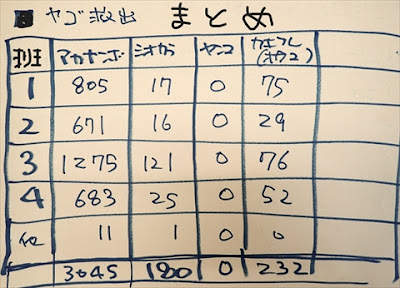 ■ ヤゴ救出 まとめ
班 アカトンボ シオカラ ヤンマ
1 805 17 0 75
2 671 16 0 29
3 1275 121 0 76
4 683 25 0 52
他 11 1 0 0
3045 180 0 232